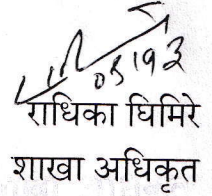 राधिका घिमिरे
शाखा अधिकृत